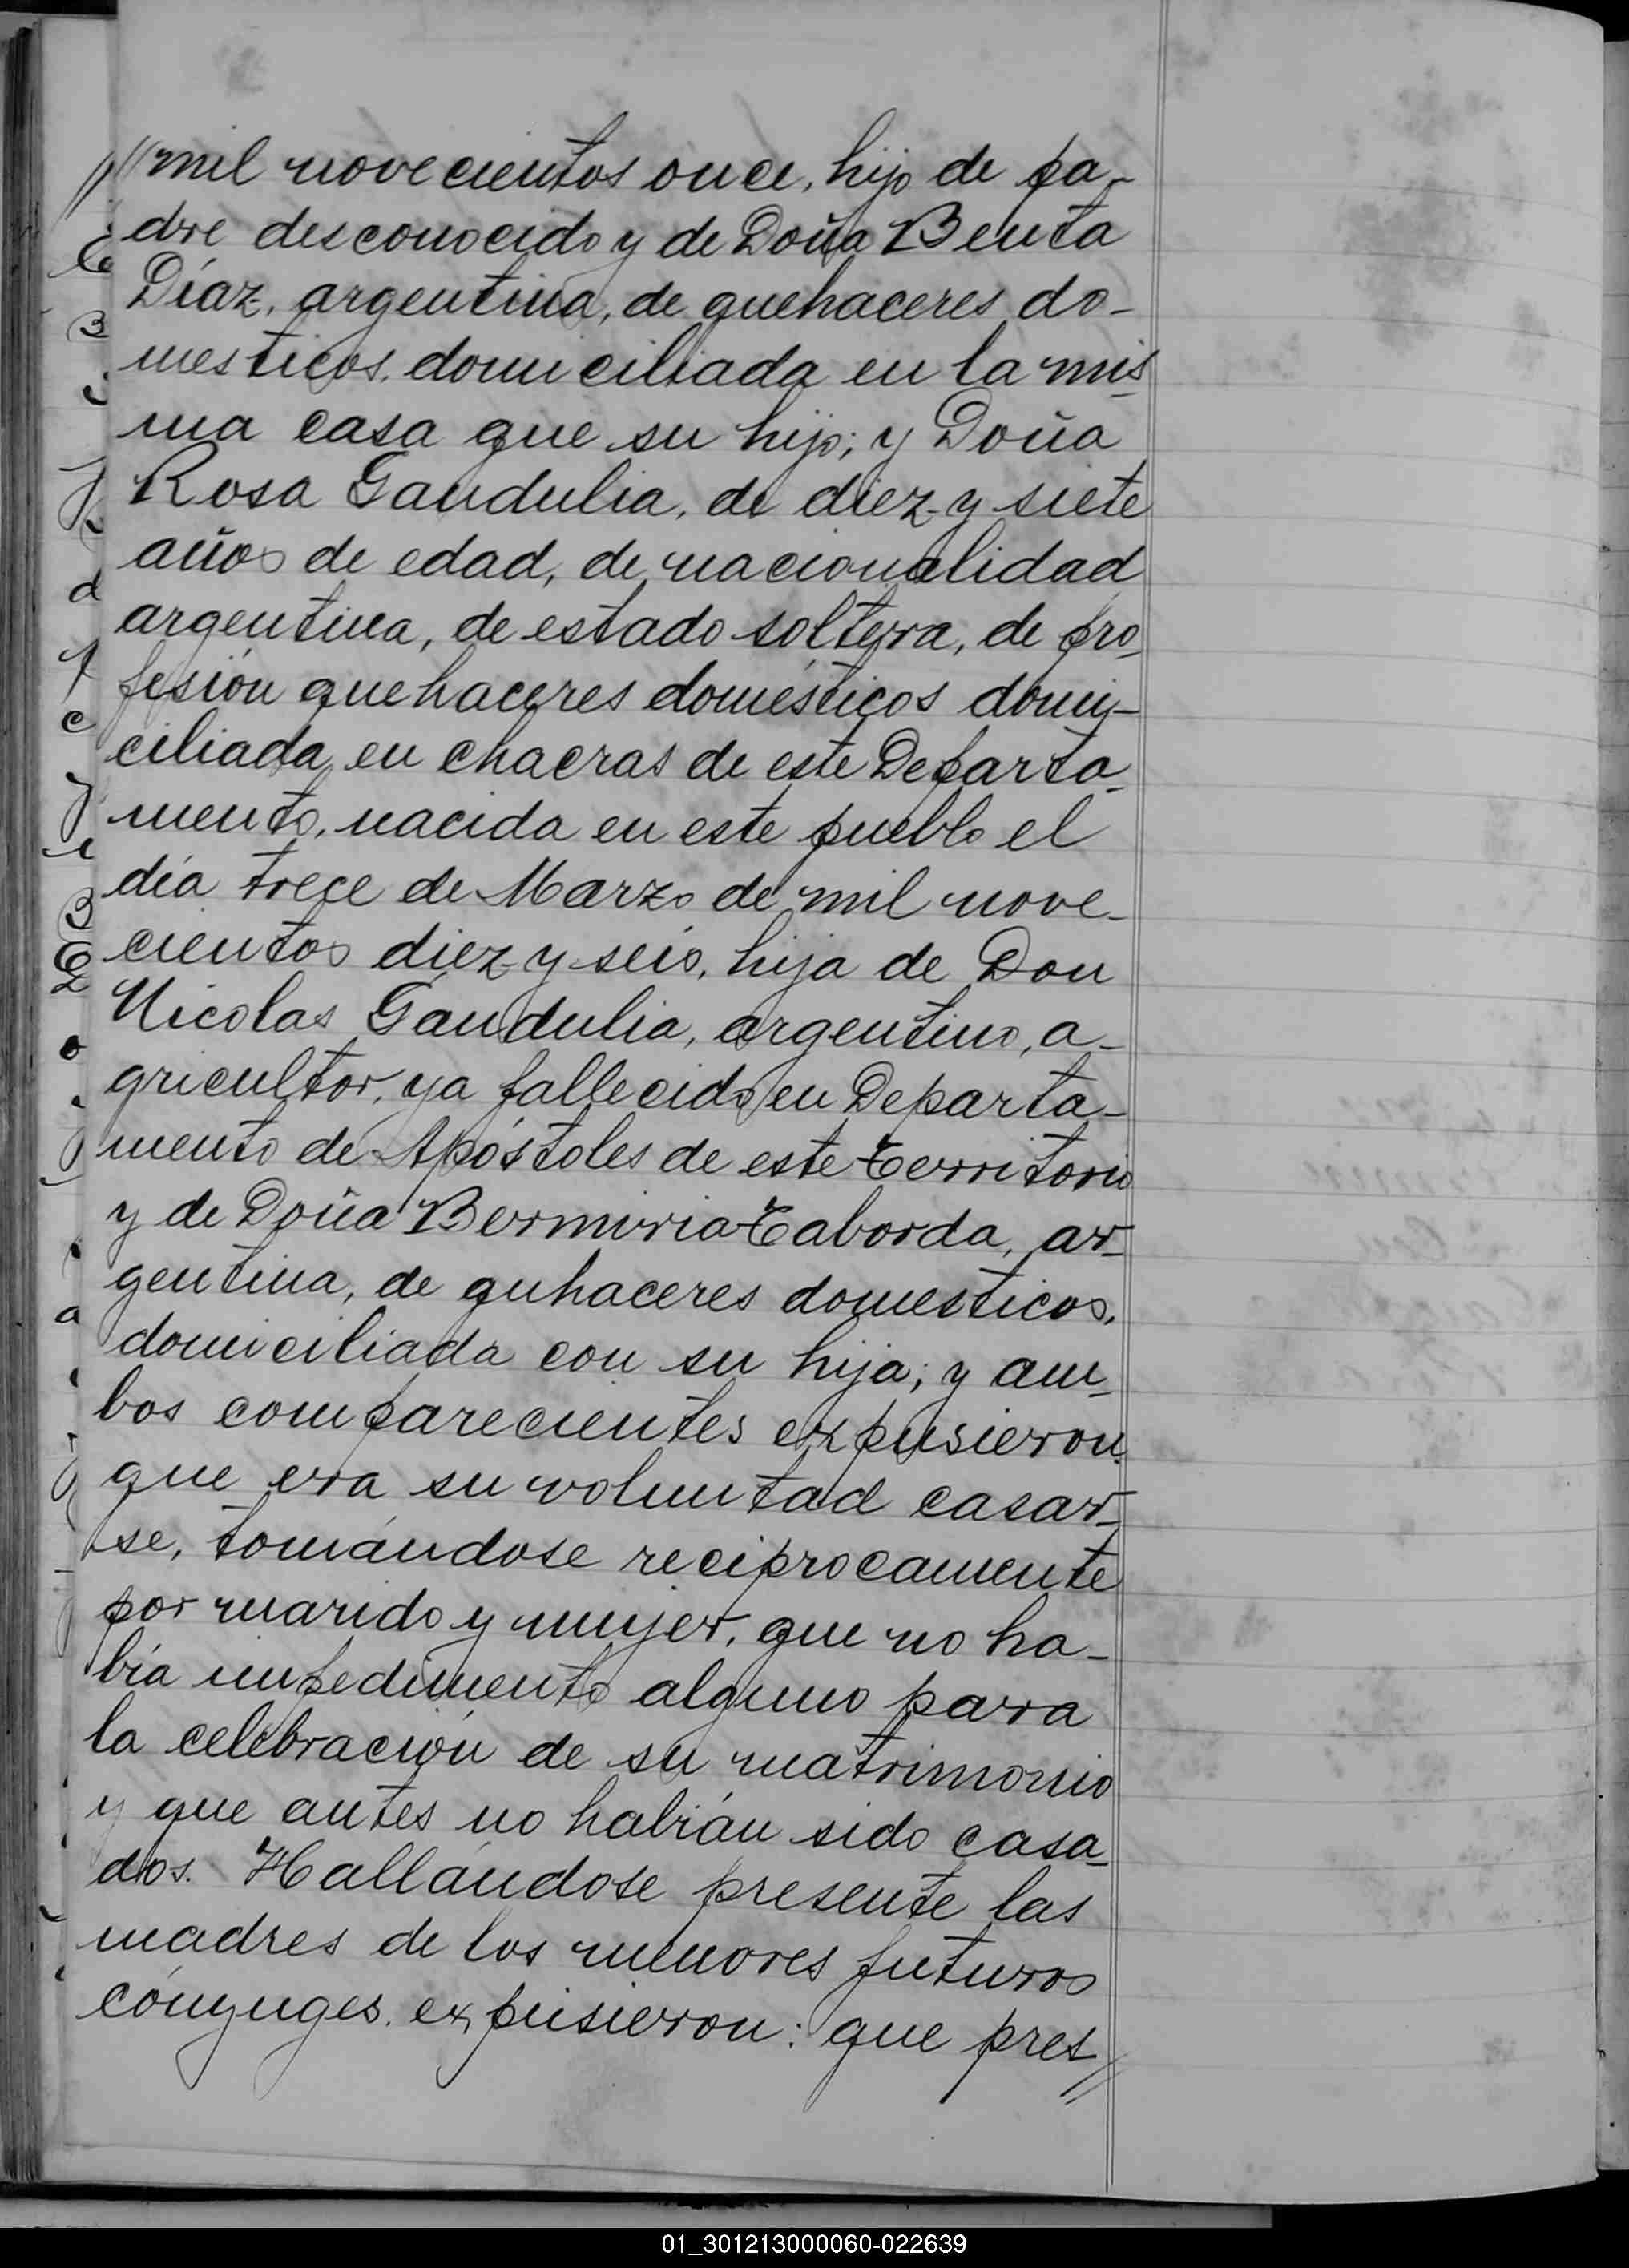 // mil novecientos once, hijo de pa-
dre desconocido y de Doña Benta
Díaz, argentina, de quehaceres do-
mesticos, domiciliada en la mis-
ma casa que su hijo; y Doña
Rosa Gandulia, de diez y siete
años de edad, de nacionalidad
argentina, de estado soltera, de pro-
fesión quehaceres domésticos domi-
ciliada en chacras de este Departa-
mento, nacida en este pueblo el
día trece de Marzo de mil nove-
cientos diez y seis, hija de Don
Nicolas Gandulia, argentino, a-
gricultor, ya fallecido en Departa-
mento de Apóstoles de este Territorio
y de Doña Bermiria Taborda, ar-
gentina, de quhaceres domesticos,
domiciliada con su hija; y am-
bos comparecientes expusieron
que era su voluntad casar-
se, tomándose reciprocamente
por marido y mujer, que no ha-
bía impedimento alguno para
la celebración de su matrimonio
y que antes no habían sido casa-
dos. Hallándose presente las
madres de los menores futuros
cónyuges, expusieron: que pres//
01_301213000060-022639